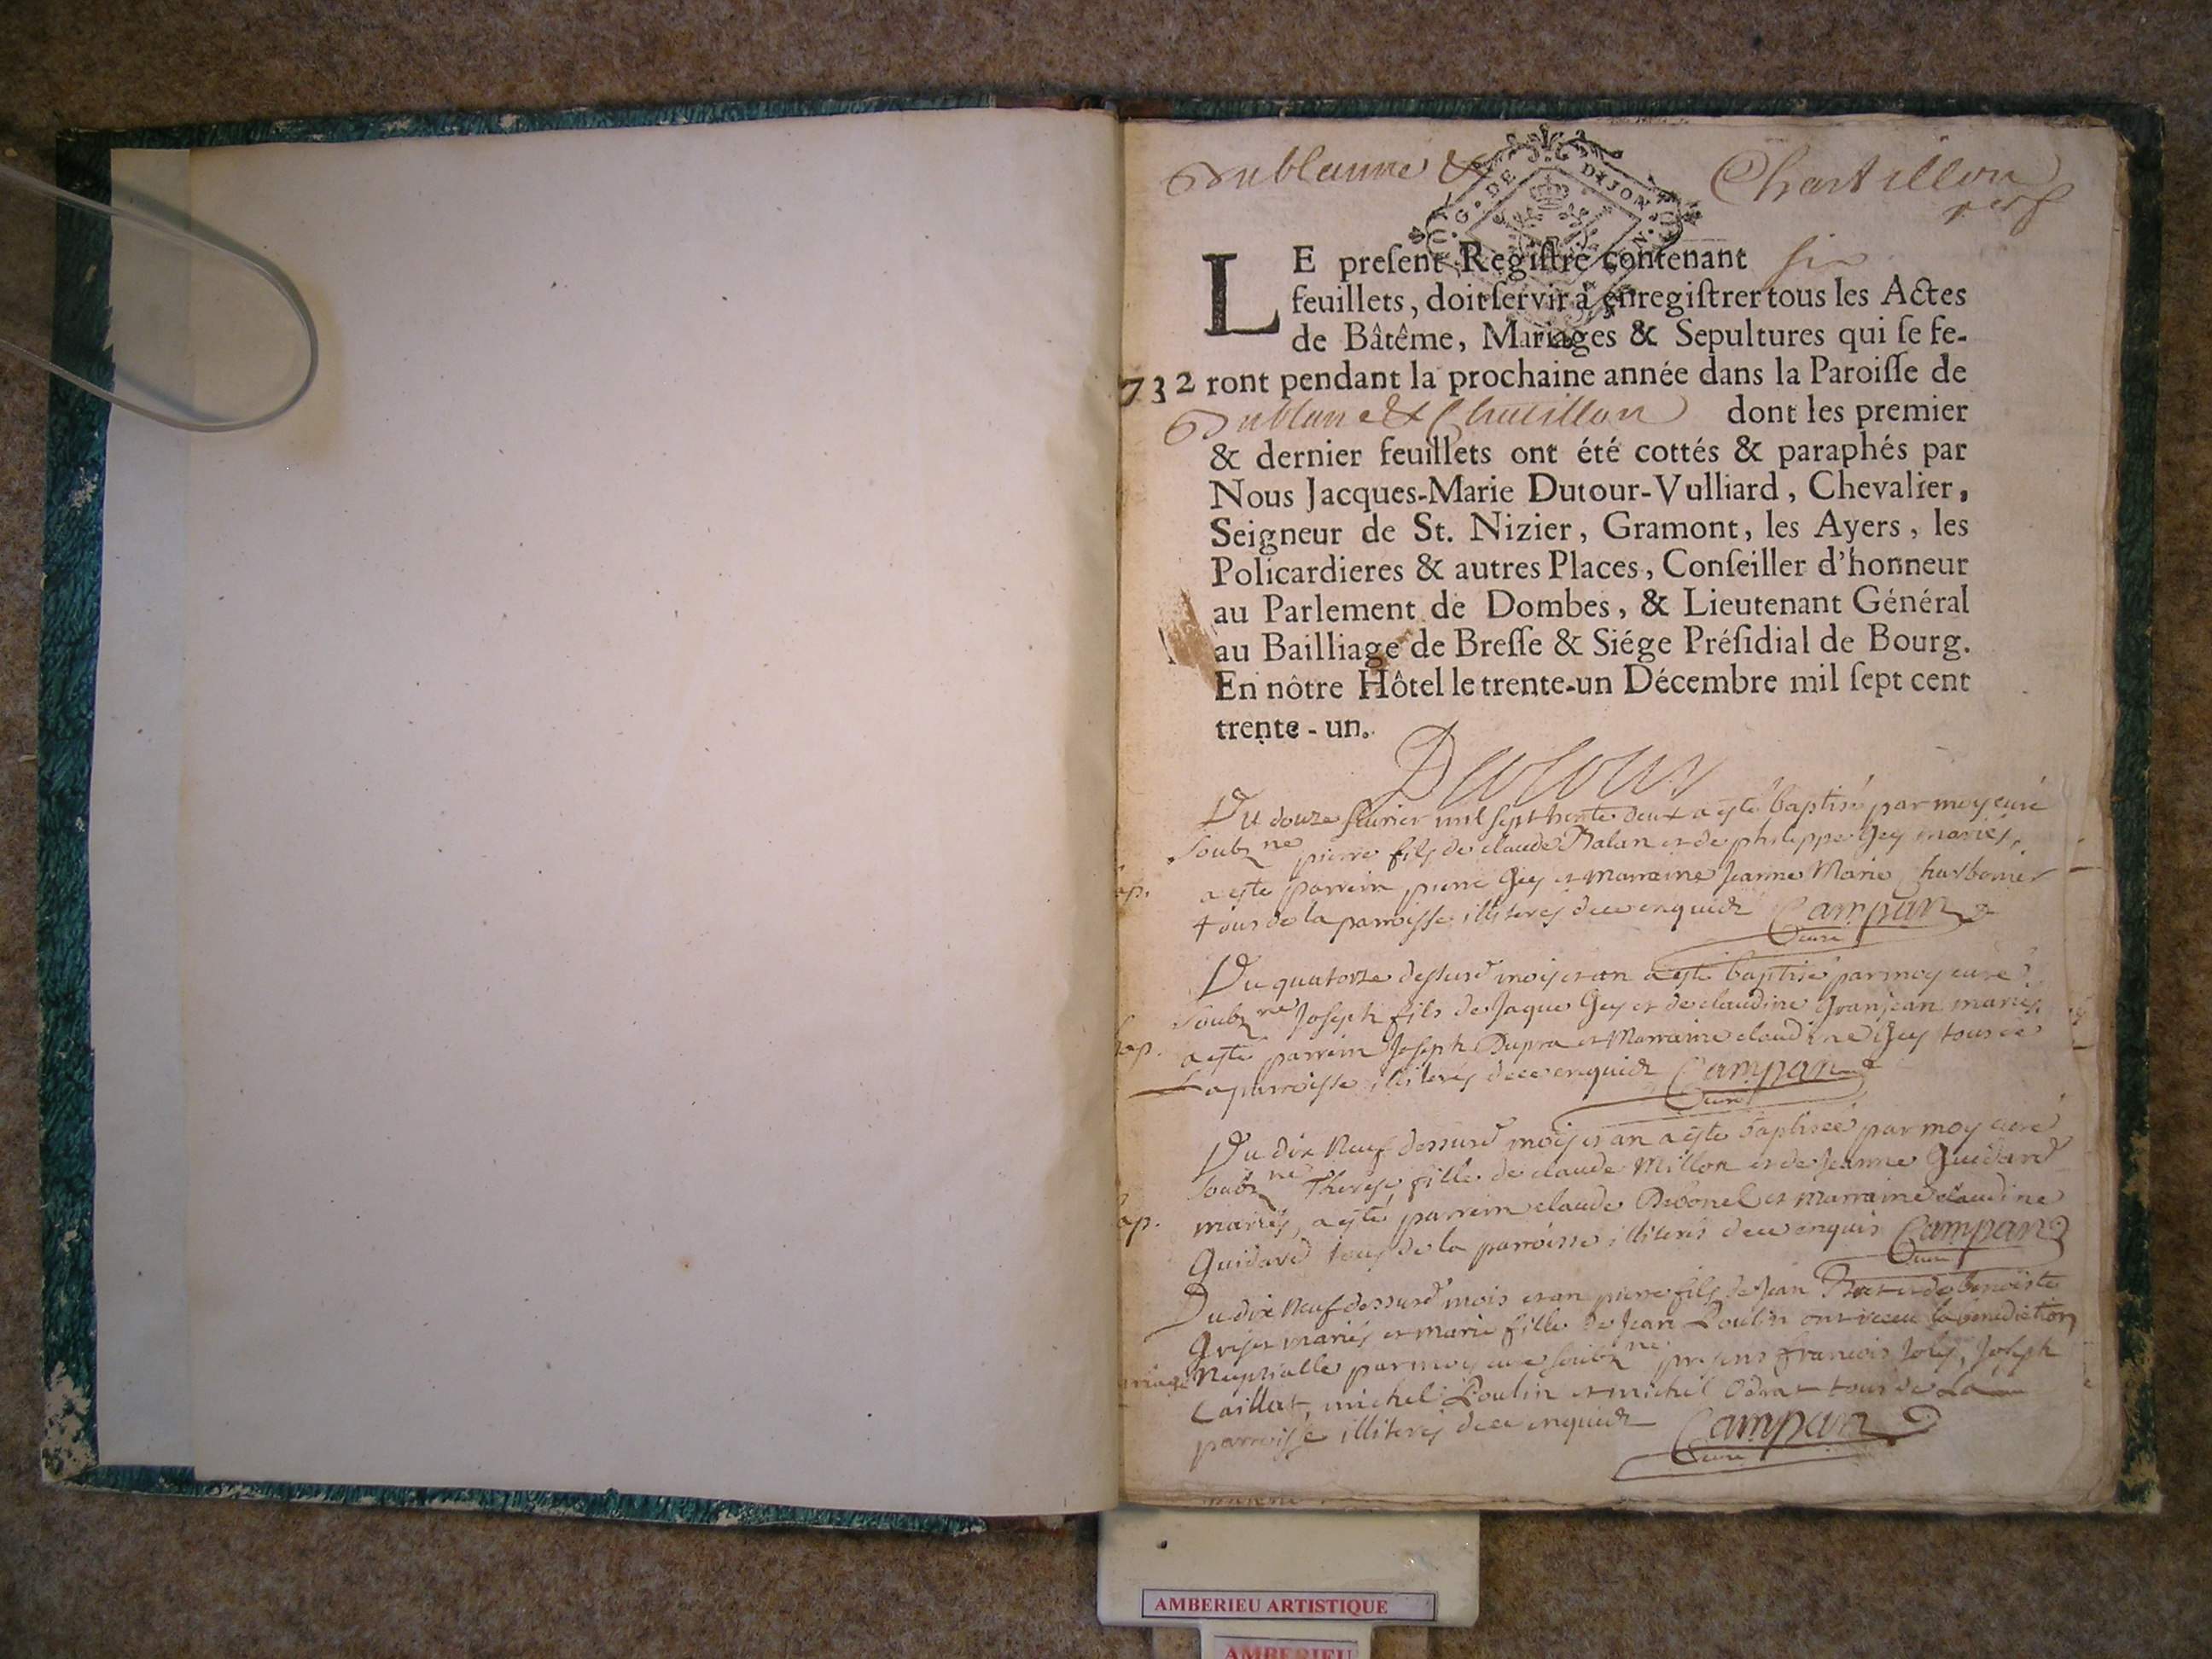 Dublanne & Chastillon
G. DE DIJON
LE preſent Regiſtre contenant six
feuillets, doit ſervir à enregiſtrer tous les Actes
de Bâtême, Mariages & Sepultures qui ſe fe-
732 ront pendant la prochaine année dans la Paroiſſe de
Dublane & Chatillon dont les premier
& dernier feuillets ont été cottés & paraphés par
Nous Jacques-Marie Dutour-Vulliard, Chevalier,
Seigneur de St. Nizier, Gramont, les Ayers, les
Policardieres & autres Places, Conſeiller d'honneur
au Parlement de Dombes, & Lieutenant Général
au Bailliage de Breſſe & Siége Préſidial de Bourg.
En nôtre Hôtel le trente-un Décembre mil ſept cent
trente-un.
Dutour
Du douze fevrier mil sept trente deux a esté baptisé par moy curé
soubzne pierre fils de claude Balan et de philippe Gey mariés,
ap. a esté parrein pierre Gey et marraine Jeanne Marie Charbonier
tous de la parroisse illiterés de ce enquis Campan
curé
Du quatorze dessusd mois et an a esté baptisé par moy curé
soubzne Joseph fils de Jaque Gey et de claudine Granjean mariés,
bap. a esté parrein Joseph Dupra et Marraine claudine Gey tous de
La parroisse illiterés de ce enquis Campan
curé
Du dix neuf dessusd mois et an a esté baptisée par moy curé
soubzne Therese fille de claude Millon et de Jeanne Guidard
ap. mariés, a esté parrein claude Debonel et marraine claudine
Guidard tous de la parroisse illiterés de ce enquis Campan
curé
Du dix neuf dessusd mois et an pierre fils de Jean et de benoiste
mariés et marie fille de Jean Poulin ont receu la benediction
riage Nuptialle par moy curé soubzne presens francois Joly, Joseph
Caillat, michel Poulin et michel tous de La
parroisse illiterés de ce enquis Campan
curé
AMBERIEU ARTISTIQUE
AMBERIEU